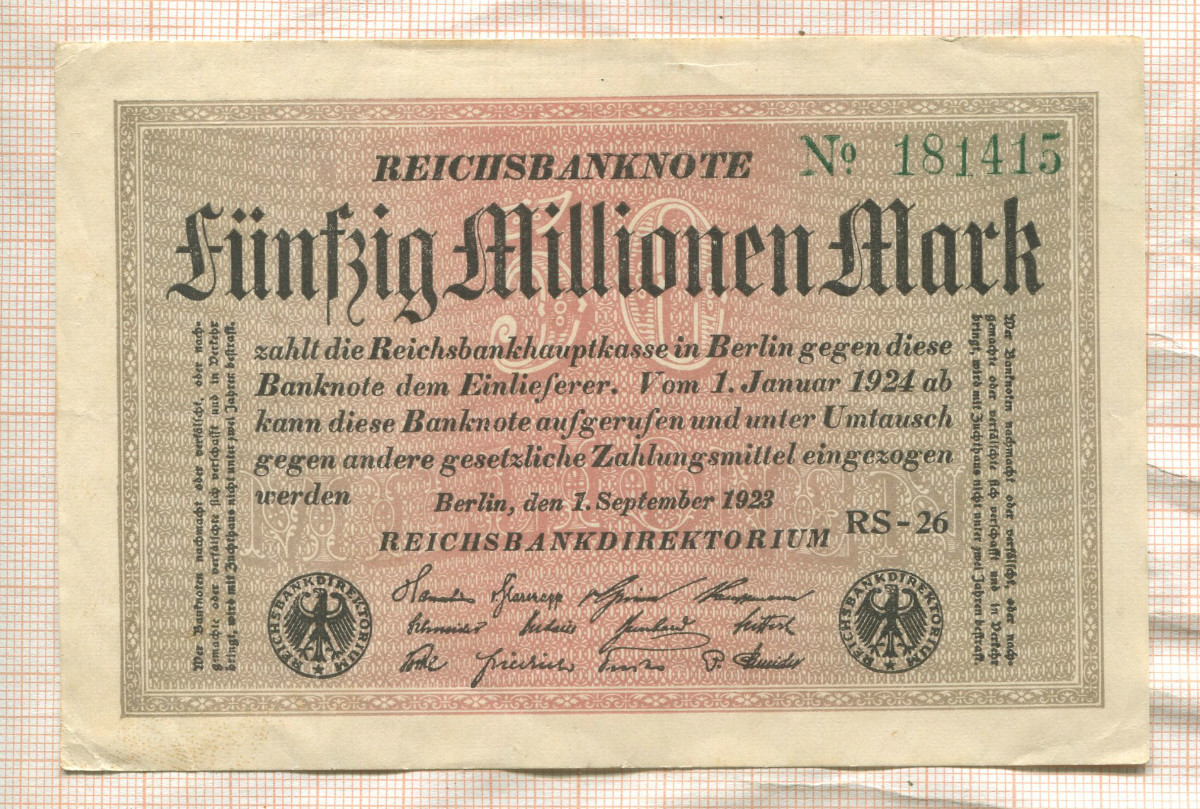 REICHSBANKNOTE
№ 181415
50
Fünfzig Millionen Mark
zahlt die Reichsbankhauptkasse in Berlin gegen diese
Banknote dem Einlieferer. Vom 1. Januar 1924 ab
kann diese Banknote aufgerufen und unter Umtausch
gegen andere gesetzliche Zahlungsmittel eingezogen
werden
MILLIONEN
Berlin, den 1. September 1923
REICHSBANKDIREKTORIUM
RS-26
Wer Banknoten nachmacht oder verfälscht, oder nach-
gemachte oder verfälschte sich verschafft und in Verkehr
bringt, wird mit Zuchthaus nicht unter zwei Jahren bestraft.
Wer Banknoten nachmacht oder verfälscht, oder nach-
gemachte oder verfälschte sich verschafft und in Verkehr
bringt, wird mit Zuchthaus nicht unter zwei Jahren bestraft.
REICHSBANKDIREKTORIUM
REICHSBANKDIREKTORIUM
Schneider
Friedrich
P. Schneider